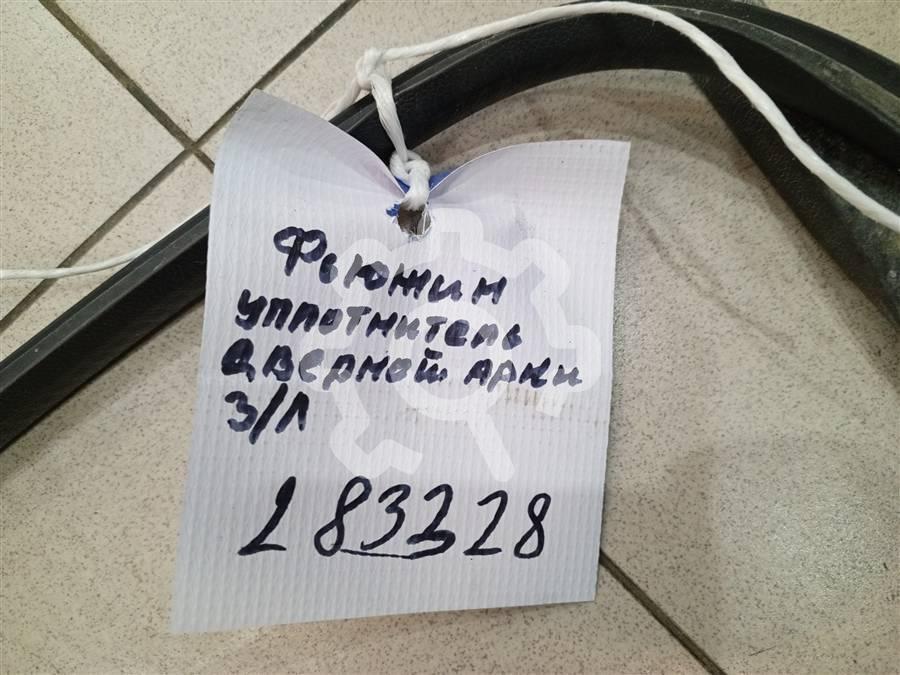 Фьюжин
уплотнитель
дверной арки
З/Л
2 83228